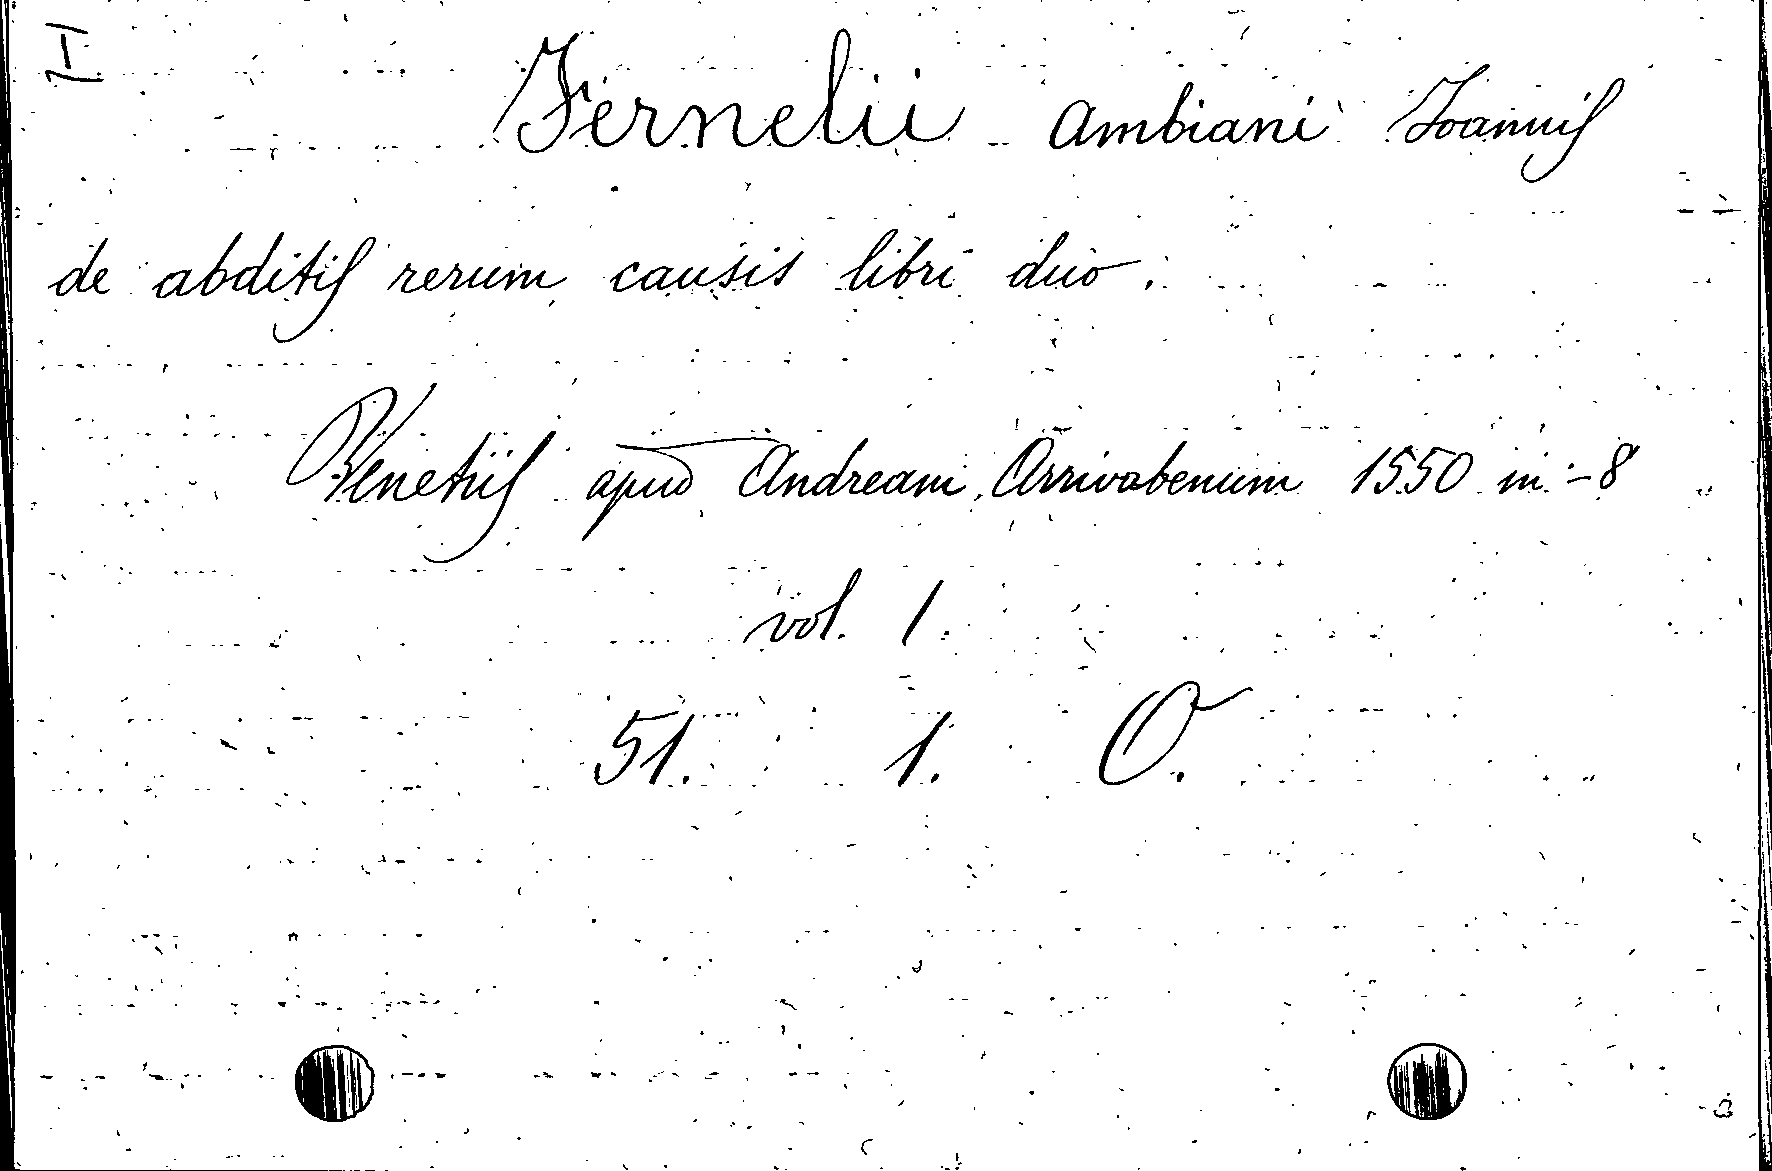 Fernelii Ambiani Joannis
de abditis rerum causis libri duo.
Venetiis apud Andream Arrivabenum 1550 in-8
vol. 1.
51. 1. O.